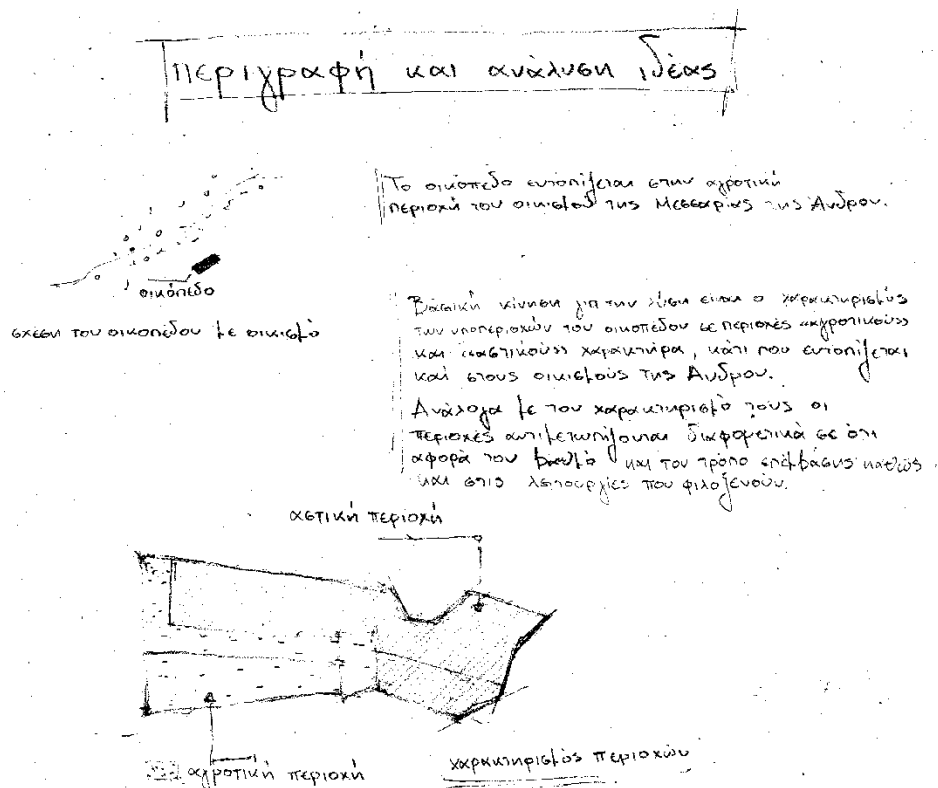 περιγραφή και ανάλυση ιδέας
Το οικόπεδο εντοπίζεται στην αγροτική
περιοχή του οικισμού της Μεσσαριάς της Άνδρου.
οικόπεδο
σχέση του οικοπέδου με οικισμό
Βασική κίνηση για την λύση είναι ο χαρακτηρισμός
των υποπεριοχών του οικοπέδου σε περιοχές «αγροτικού»
και «αστικού» χαρακτήρα, κάτι που εντοπίζεται
και στους οικισμούς της Άνδρου.
Ανάλογα με τον χαρακτηρισμό τους οι
περιοχές αντιμετωπίζονται διαφορετικά σε ότι
αφορά τον βαθμό και τον τρόπο επέμβασης καθώς
και στις λειτουργίες που φιλοξενούν.
αστική περιοχή
αγροτική περιοχή
χαρακτηρισμός περιοχών